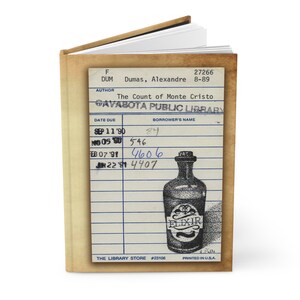 F 27266
DUM Dumas, Alexandre 8-89
AUTHOR
The Count of Monte Cristo
GAVABOTA PUBLIC LIBRARY
DATE DUE BORROWER'S NAME
SEP 11 '90
546
4606
JAN 22 '91 4407
ELIXIR
THE LIBRARY STORE PRINTED IN U.S.A.